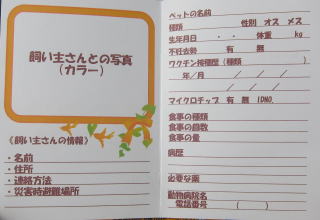 飼い主さんとの写真
(カラー)
《飼い主さんの情報》
・名前
・住所
・連絡方法
・災害時避難場所
ペットの名前
種類 性別 オス メス
生年月日 ・ ・ 体重 kg
不妊去勢 有 無
ワクチン接種歴 (種類 )
年/月 / / /
/ / /
マイクロチップ 有 無 IDNO.
食事の種類
食事の回数
食事の量
病歴
必要な薬
動物病院名
電話番号 ( )